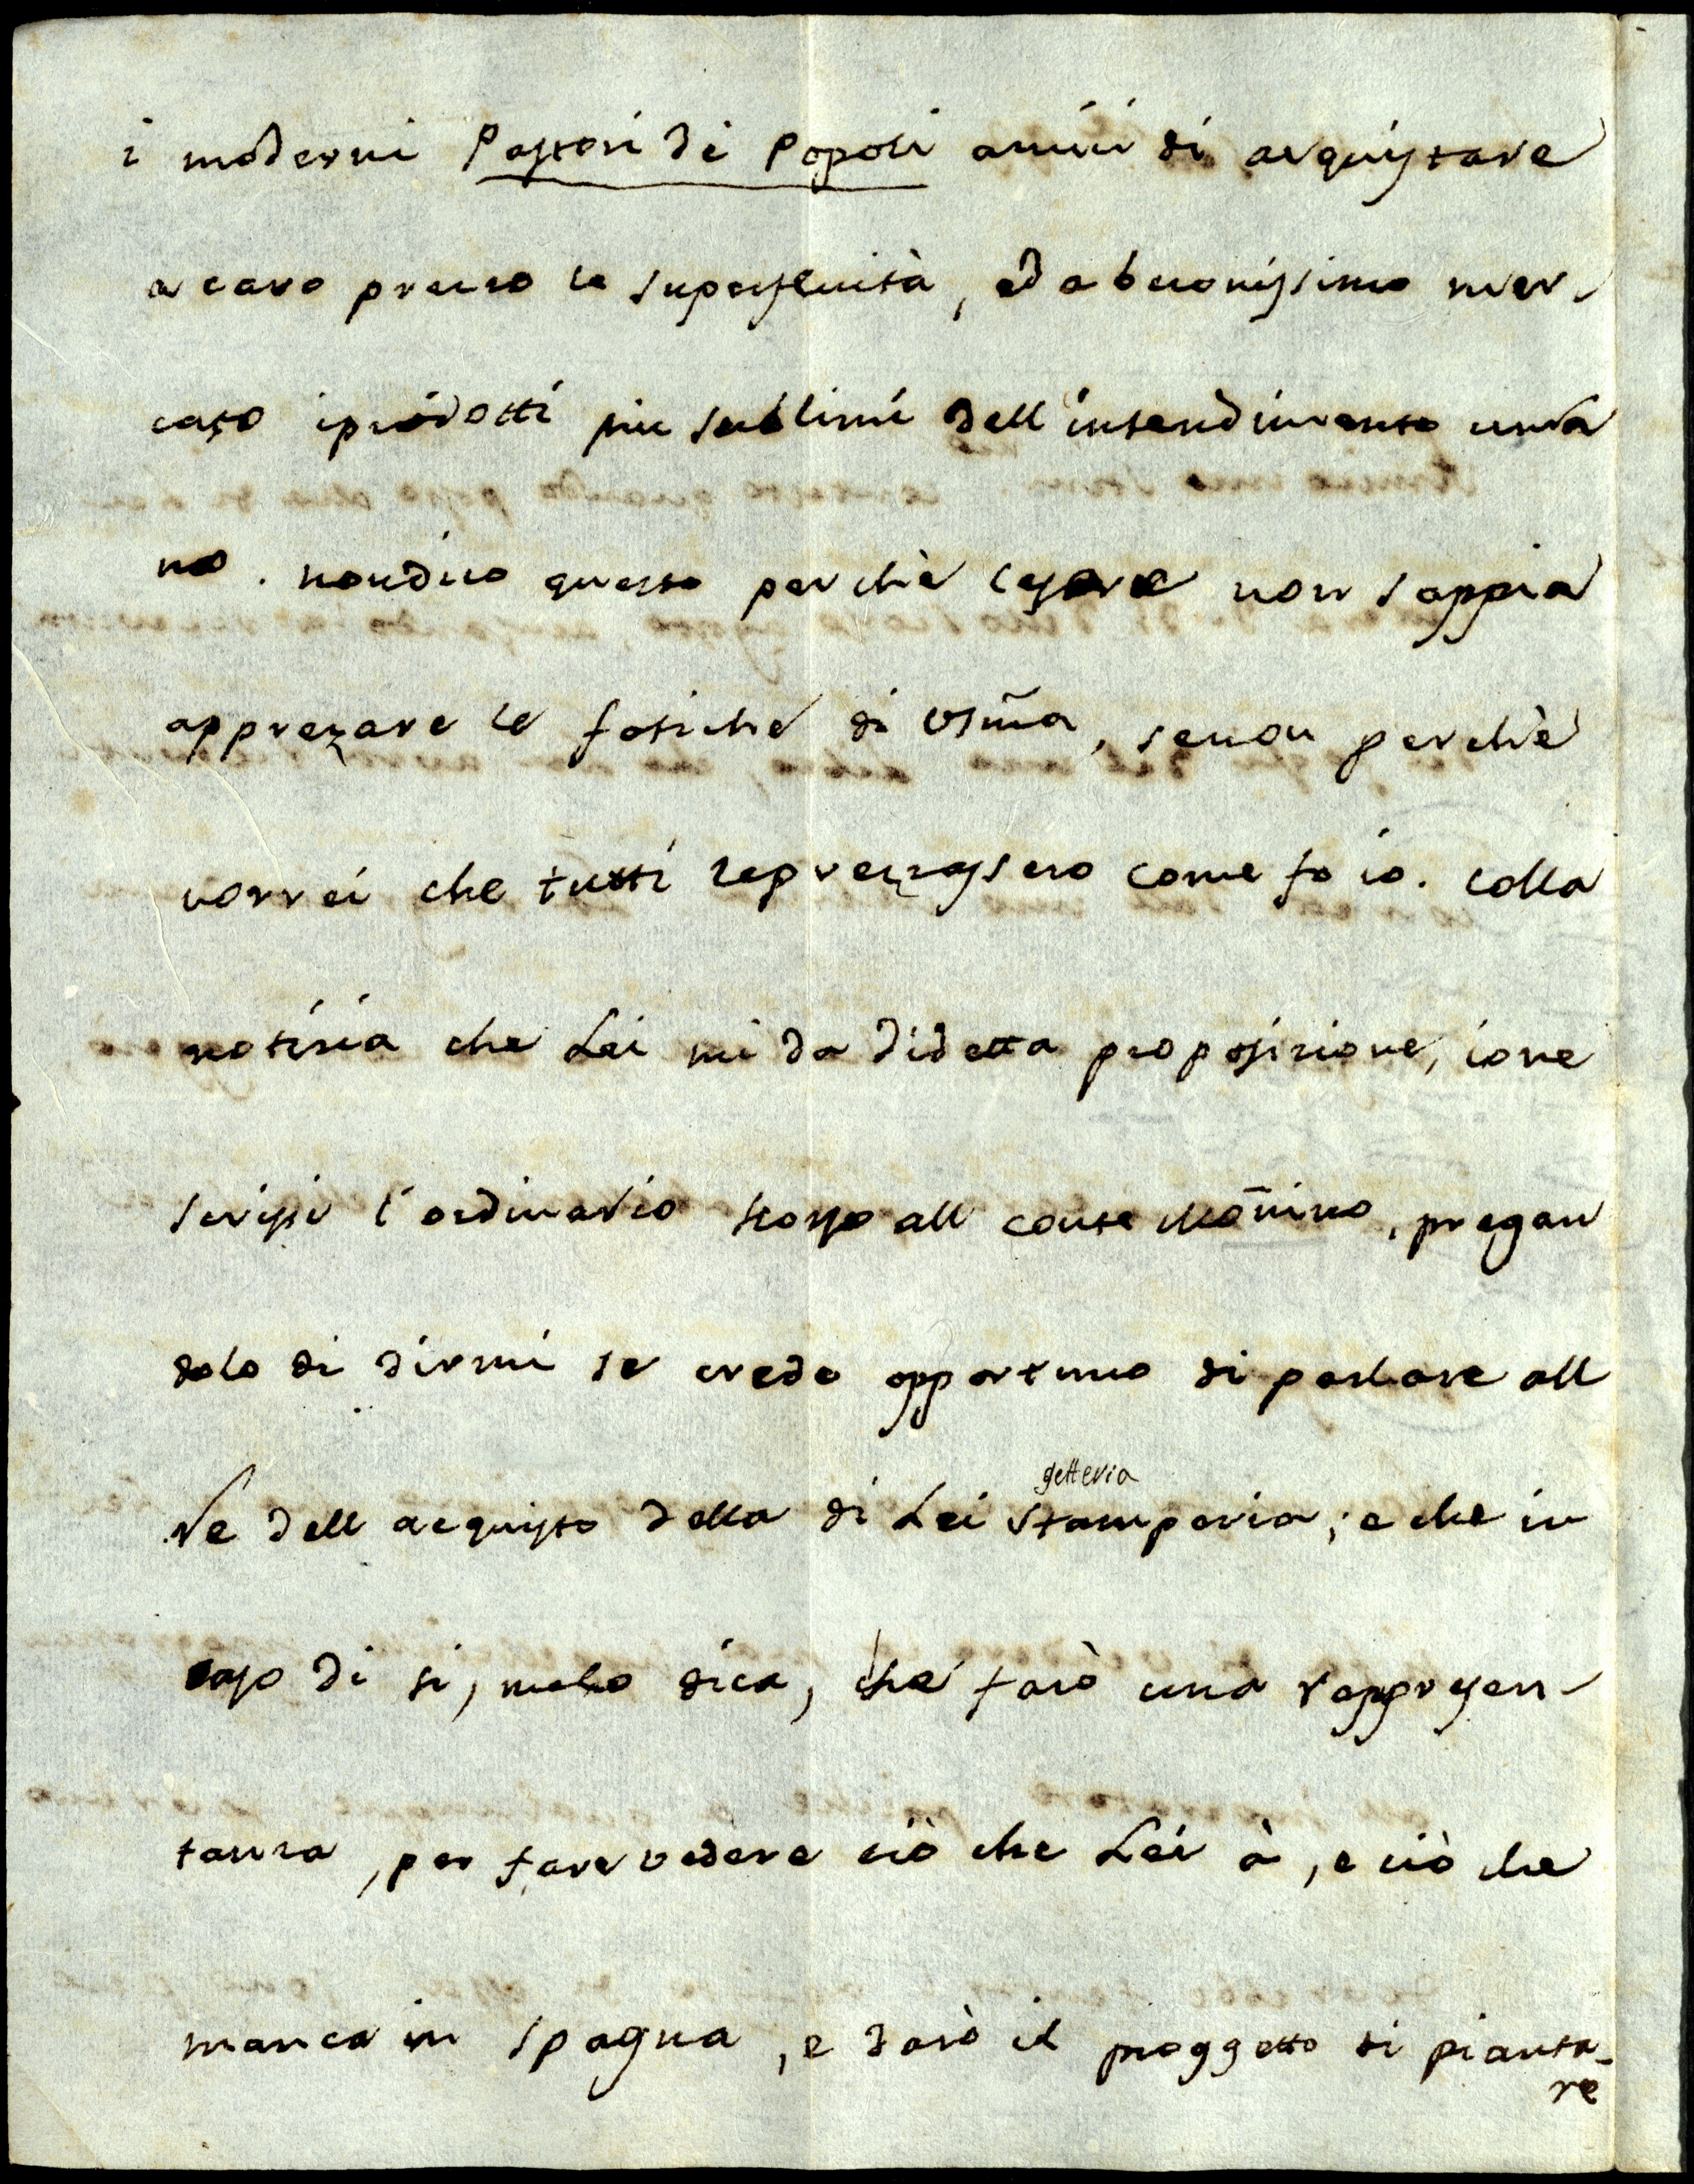 i moderni Pastori de Popoli amici di acquistare
a caro prezzo le superfluità, ed a buonissimo mer-
cato i prodotti piu sublimi dell intendimento uma
no. non dico questo perchè Cesare non sappia
apprezare le fatiche di Vs̃ma, se non perchè
vorrei che tutti le prezzassero come fo io. colla
notizia che Lei mi da di detta proposizione, io ne
scrissi l'ordinario scorso all conte Mõnino, pregan
dolo di dirmi se crede opportuno di parlare all
Re dell acquisto della di Lei getteria Stamperia; e che in
caso di si, melo dica, che farò una rappresen-
tanza, per fare vedere ciò che Lei à, e ciò che
manca in Spagna, e darò il proggetto di pianta-
re